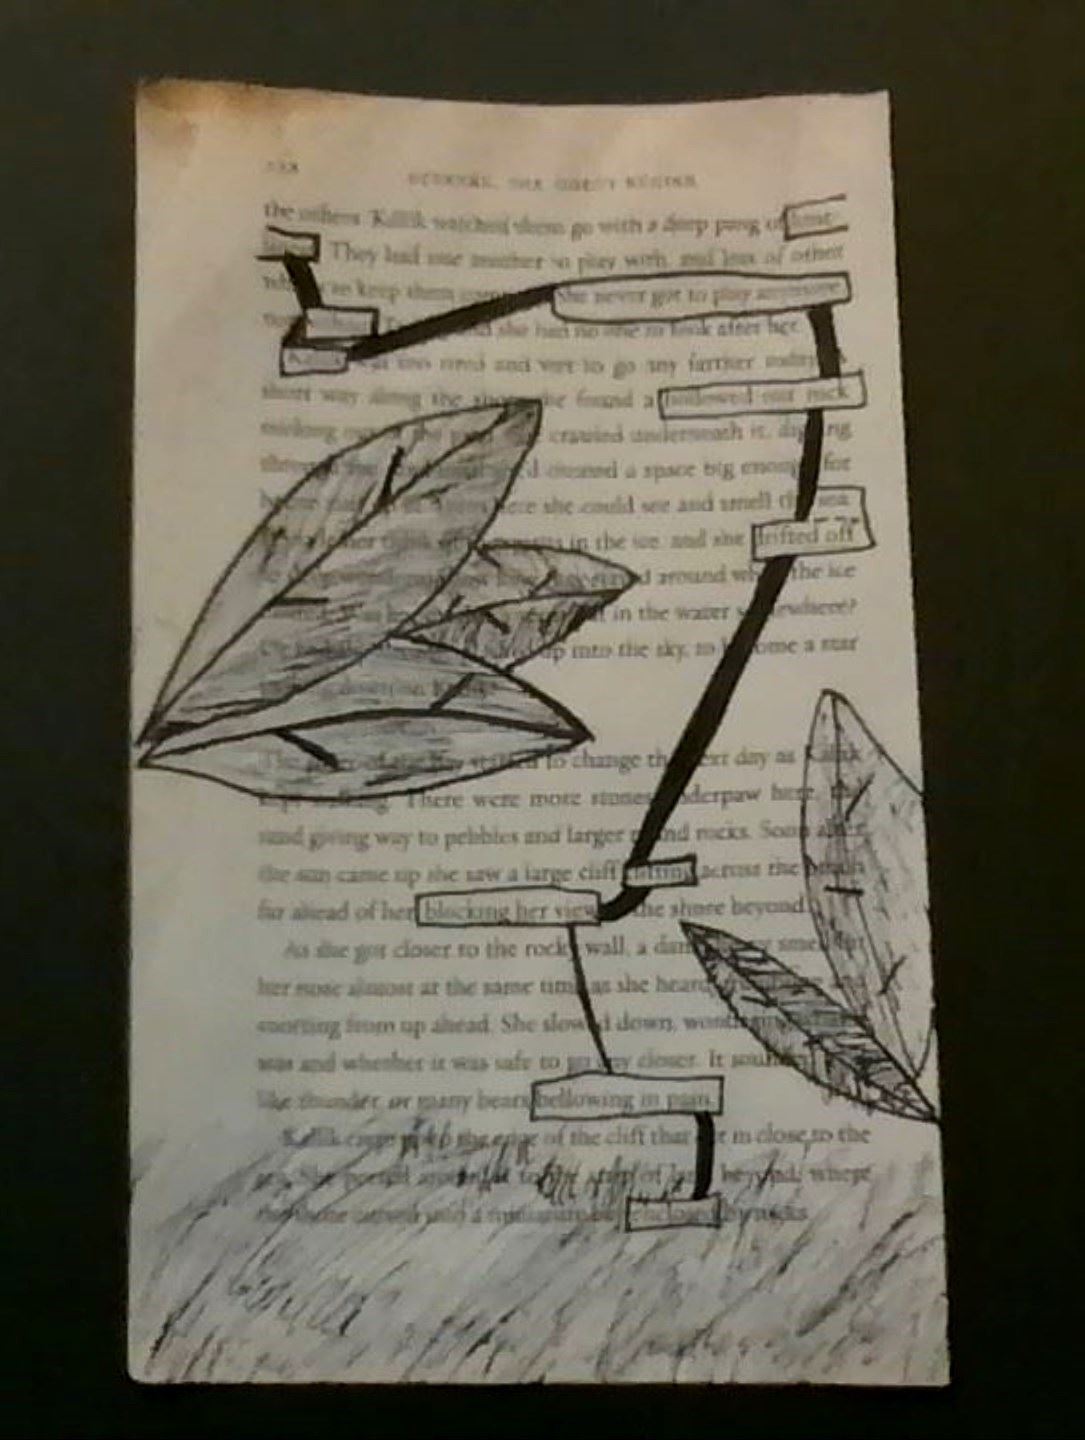 SEEKERS: THE QUEST BEGINS
the others. Kallik watched them go with a deep pang of lone-
liness. They had one another to play with, and lots of other
to keep them com she never got to play anymore
she had no one to look after her.
Kallik was too tired and wet to go any farther
short way along the shore she found a hollowed out rock
sticking out of the crawled underneath it, digging
through the created a space big enough for
here she could see and smell the sea.
her think of in the ice, and she drifted off
around the ice
in the water somewhere?
up into the sky, to become a star
down on
The of the started to change the next day as Kallik
kept walking. There were more stones underpaw here, the
sand giving way to pebbles and larger round rocks. Soon after
the sun came up she saw a large cliff jutting across the beach
far ahead of her blocking her view the shore beyond.
As she got closer to the rocky wall, a dank smell hit
her nose almost at the same time as she heard and
snorting from up ahead. She slowed down, wondering what
was and whether it was safe to go any closer. It sounded
like thunder, or many bears bellowing in pain.
Kallik crept up to the edge of the cliff that close to the
sea. She peered around it to the strip of land beyond, where
the shore curved into a miniature bay enclosed by rocks.